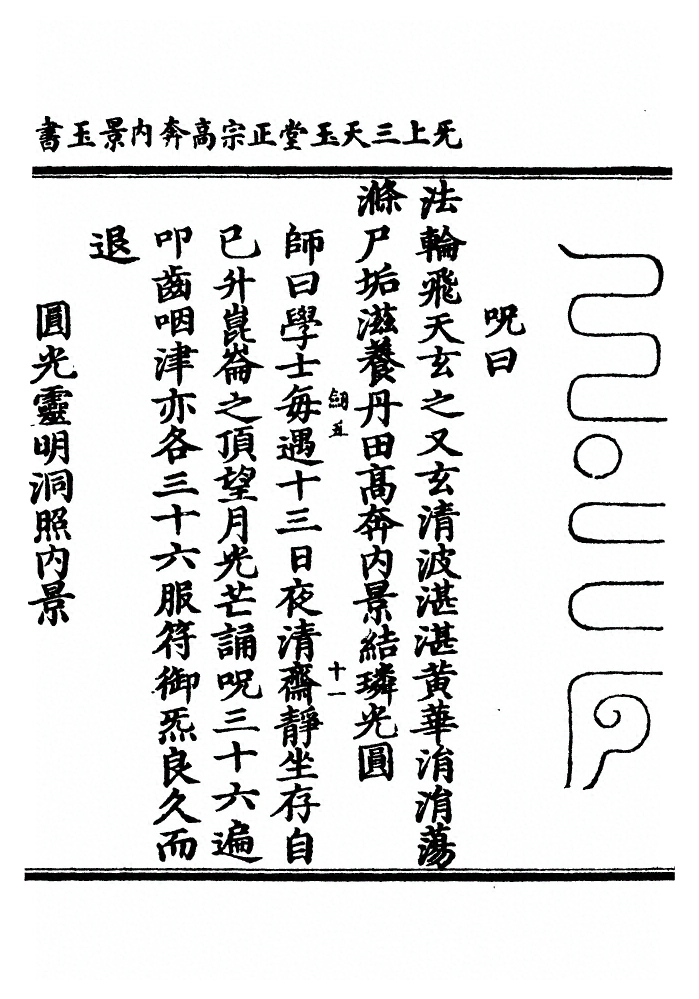 无上三天玉堂正宗高奔內景玉書
呪曰
法輪飛天玄之又玄清波湛湛黃華涓涓蕩
滌尸垢滋養丹田高奔內景結璘光圓
師曰學士每遇十三日夜清齋靜坐存自
己升崑崙之頂望月光芒誦呪三十六遍
叩齒咽津亦各三十六服符御炁良久而
退
圓光靈明洞照內景
十一